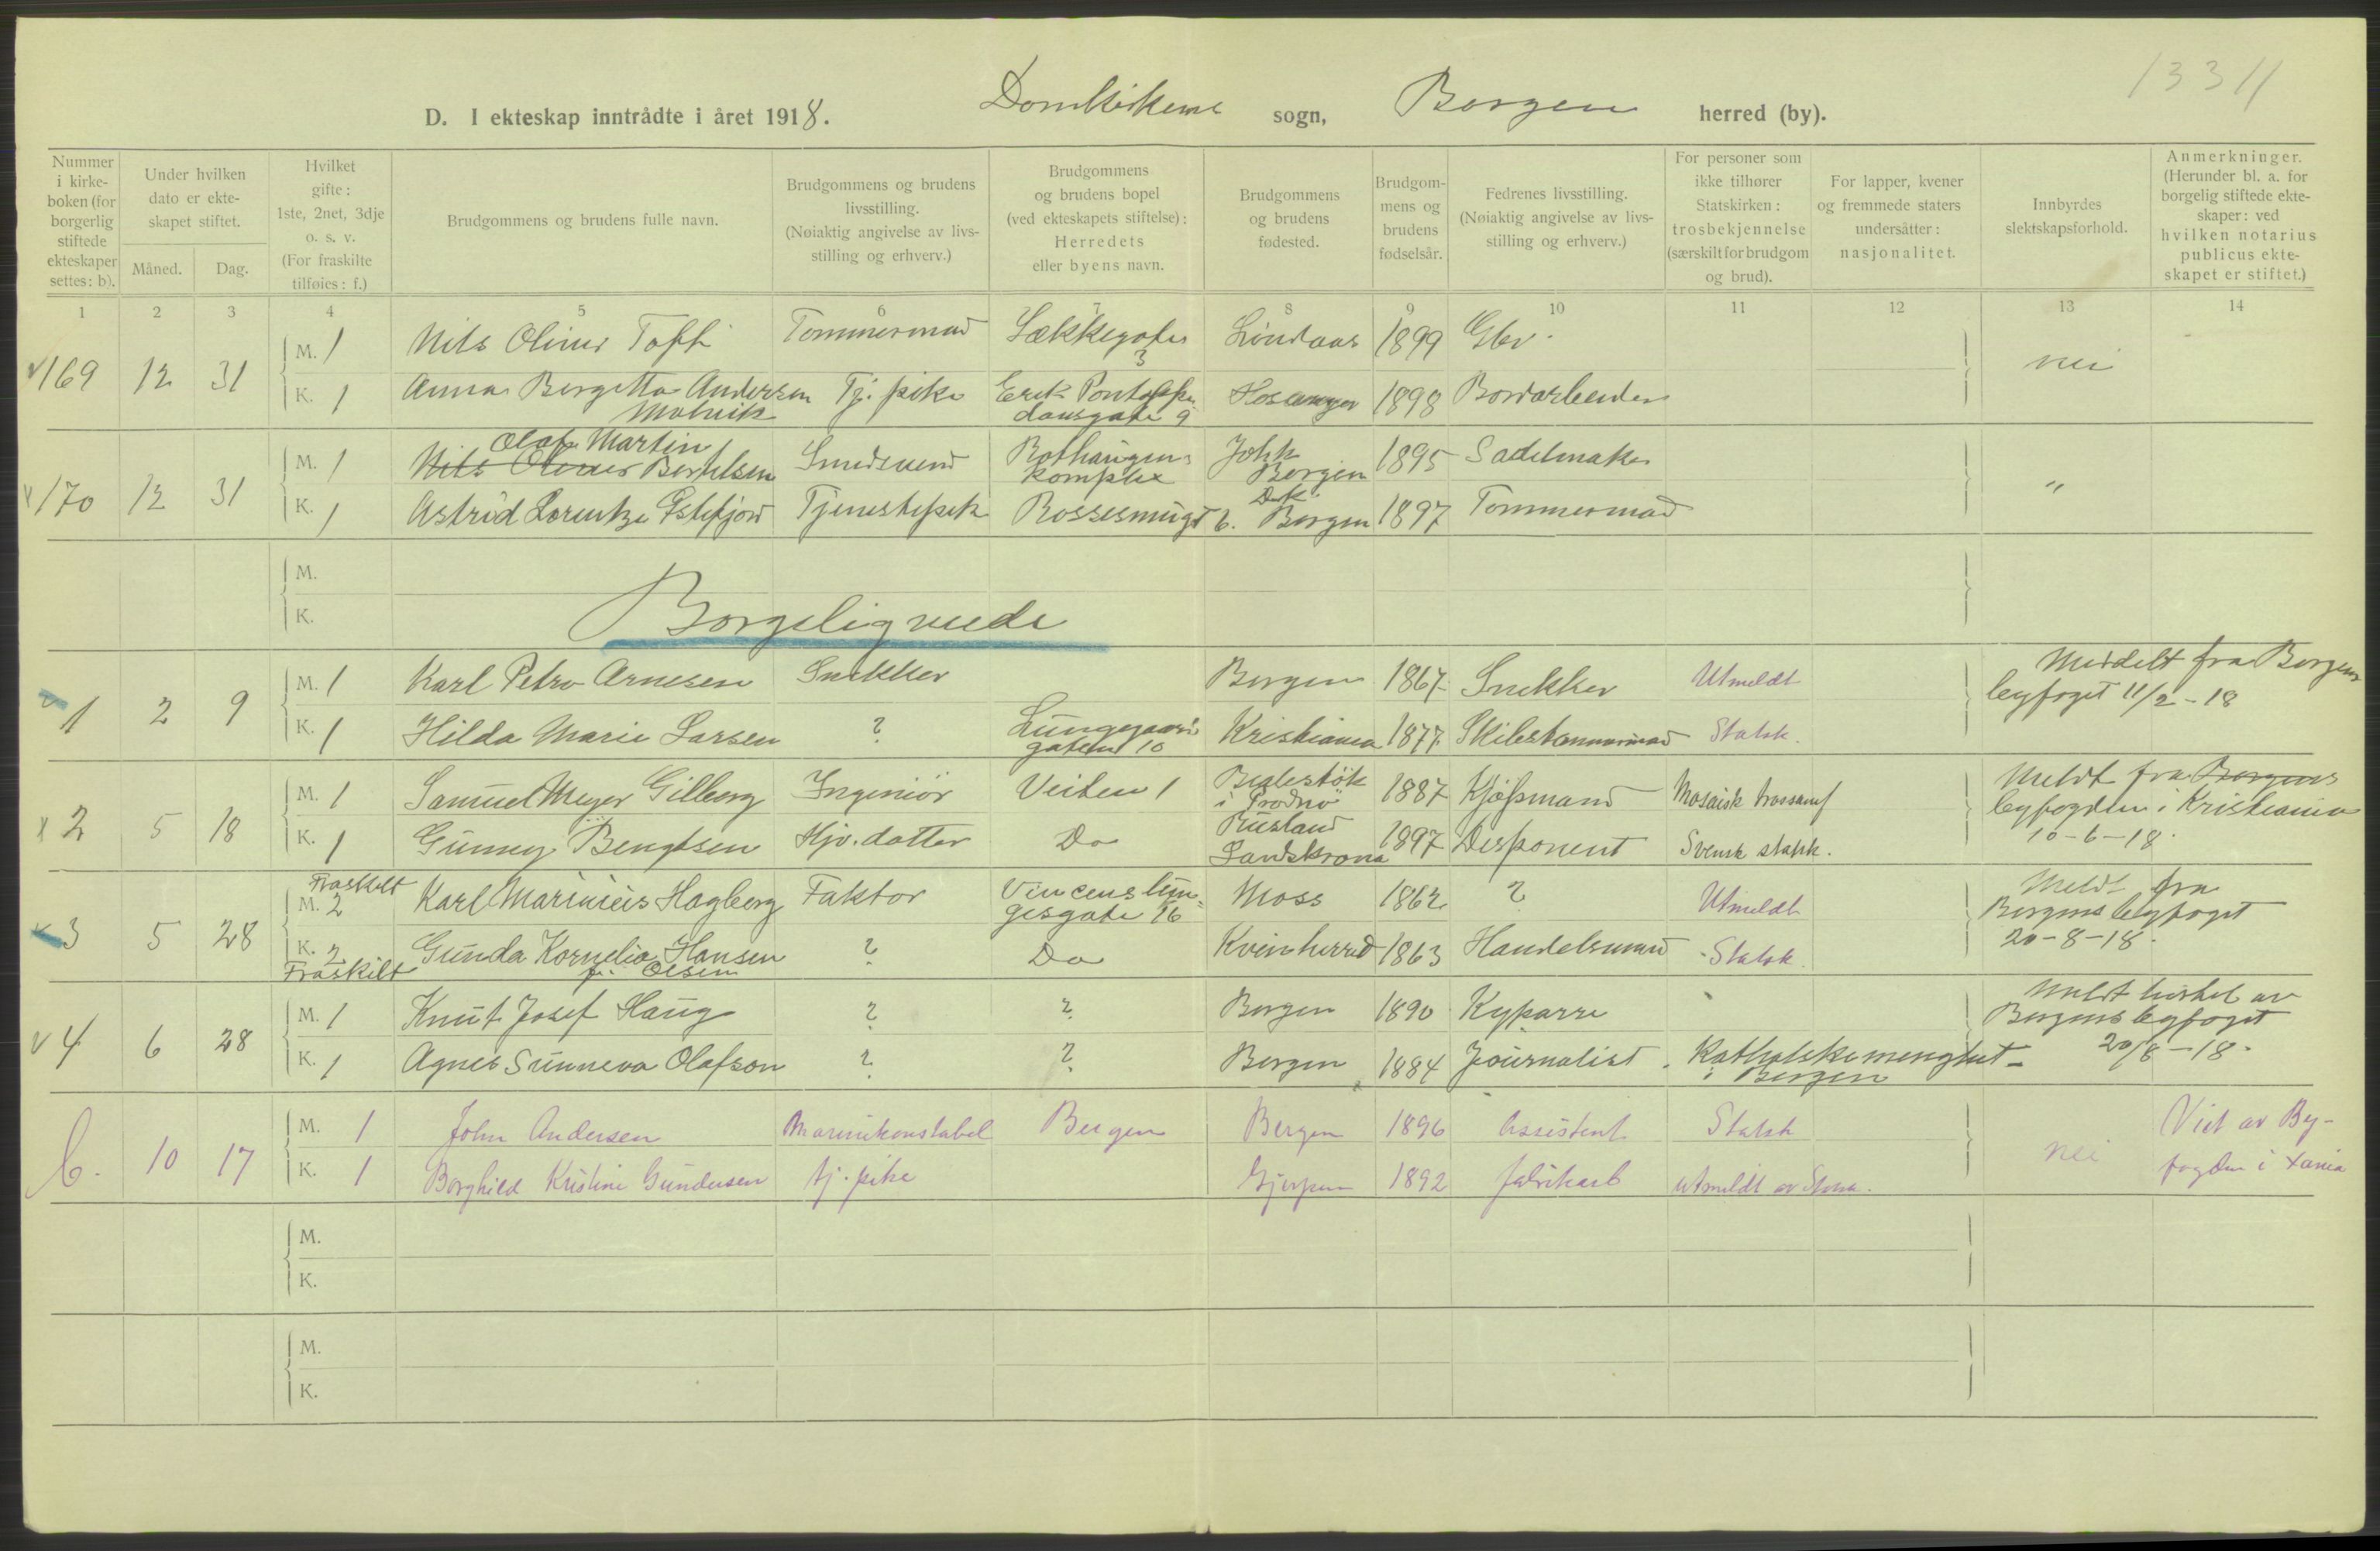 1331
D. I ekteskap inntrådte i året 1918. Domkirkens sogn, Bergen herred (by).
Nummer i kirke-boken (for borgerlig stiftede ekteskaper settes: b).
Under hvilken dato er ekte-skapet stiftet.
Måned. Dag.
Hvilket gifte: 1ste, 2net, 3dje o. s. v. (For fraskilte tilføies: f.)
Brudgommens og brudens fulle navn.
Brudgommens og brudens livsstilling. (Nøiaktig angivelse av livs-stilling og erhverv.)
Brudgommens og brudens bopel (ved ekteskapets stiftelse): Herredets eller byens navn.
Brudgommens og brudens fødested.
Brudgom-mens og brudens fødselsår.
Fedrenes livsstilling. (Nøiaktig angivelse av livs-stilling og erhverv.)
For personer som ikke tilhører Statskirken: trosbekjennelse (særskilt for brudgom og brud).
For lapper, kvener og fremmede staters undersåtter: nasjonalitet.
Innbyrdes slektskapsforhold.
Anmerkninger. (Herunder bl. a. for borgelig stiftede ekte-skaper: ved hvilken notarius publicus ekte-skapet er stiftet.)
1 2 3 4 5 6 7 8 9 10 11 12 13 14
169 12 31 M. 1 Nils Oliver Toft Tømmermand Lækkegaten 3 1899 Gbr. nei
K. 1 Anna Bergitta Andersen Tj. pike Erik Pontoppidansgate 9 Hosanger 1898 Bordarbeider
170 12 31 M. 1 Olaf Martin Nils Oliver Bertelsen Smedsvend Rothaugens komplex Johk Bergen 1895 Sadelmaker "
K. 1 Astrid Lorentze Tjenestepik Rossesmugt 6. Dk. Bergen 1897 Tømmermand
M.
K.
Borgelig viede
1 2 9 M. 1 Karl Petro Arnesen Snekker Bergen 1867 Snekker Utmeldt Meddelt fra Bergens byfoget 11/2-18
K. 1 Hilda Marie Larsen ? Lungegaardsgaten 10 Kristiania 1877 Skibstømmermand Statsk.
2 5 18 M. 1 Samuel Meyer Gilberg Ingeniør Veiten 1 1887 Kjøpmand Mosaisk trossamf Meldt fra Bergens byfogden i Kristiania 10-6-18.
K. 1 Gunney Bengtsen Hjv. datter Do Rusland Landskrona 1897 Disponent Svensk statsk.
3 5 28 Fraskilt M. 2 Karl Marinius Hagberg Faktor Vincens lungesgate 16 Moss 1862 ? Utmeldt Meldt fra Bergens byfoget 20-8-18.
K. 2 Fraskilt Gunda Kornelia Hansen f. Olsen ? Do Kvinherred 1863 Handelsmand Statsk.
4 6 28 M. 1 Knut Josef Haug ? ? Bergen 1890 Kyparre Meldt hertil av Bergens byfoget 20/8-18.
K. 1 Agnes Sunneva Olafson ? ? Bergen 1884 Journalist Katholske menighet i Bergen
b. 10 17 M. 1 John Andersen Marinekonstabel Bergen Bergen 1896 Assistent Statsk nei Viet av By-fogden i Xania
K. 1 Borghild Kristine Gundersen tj. pike Gjerpen 1892 fabrikarb utmeldt av Statsk.
M.
K.
M.
K.